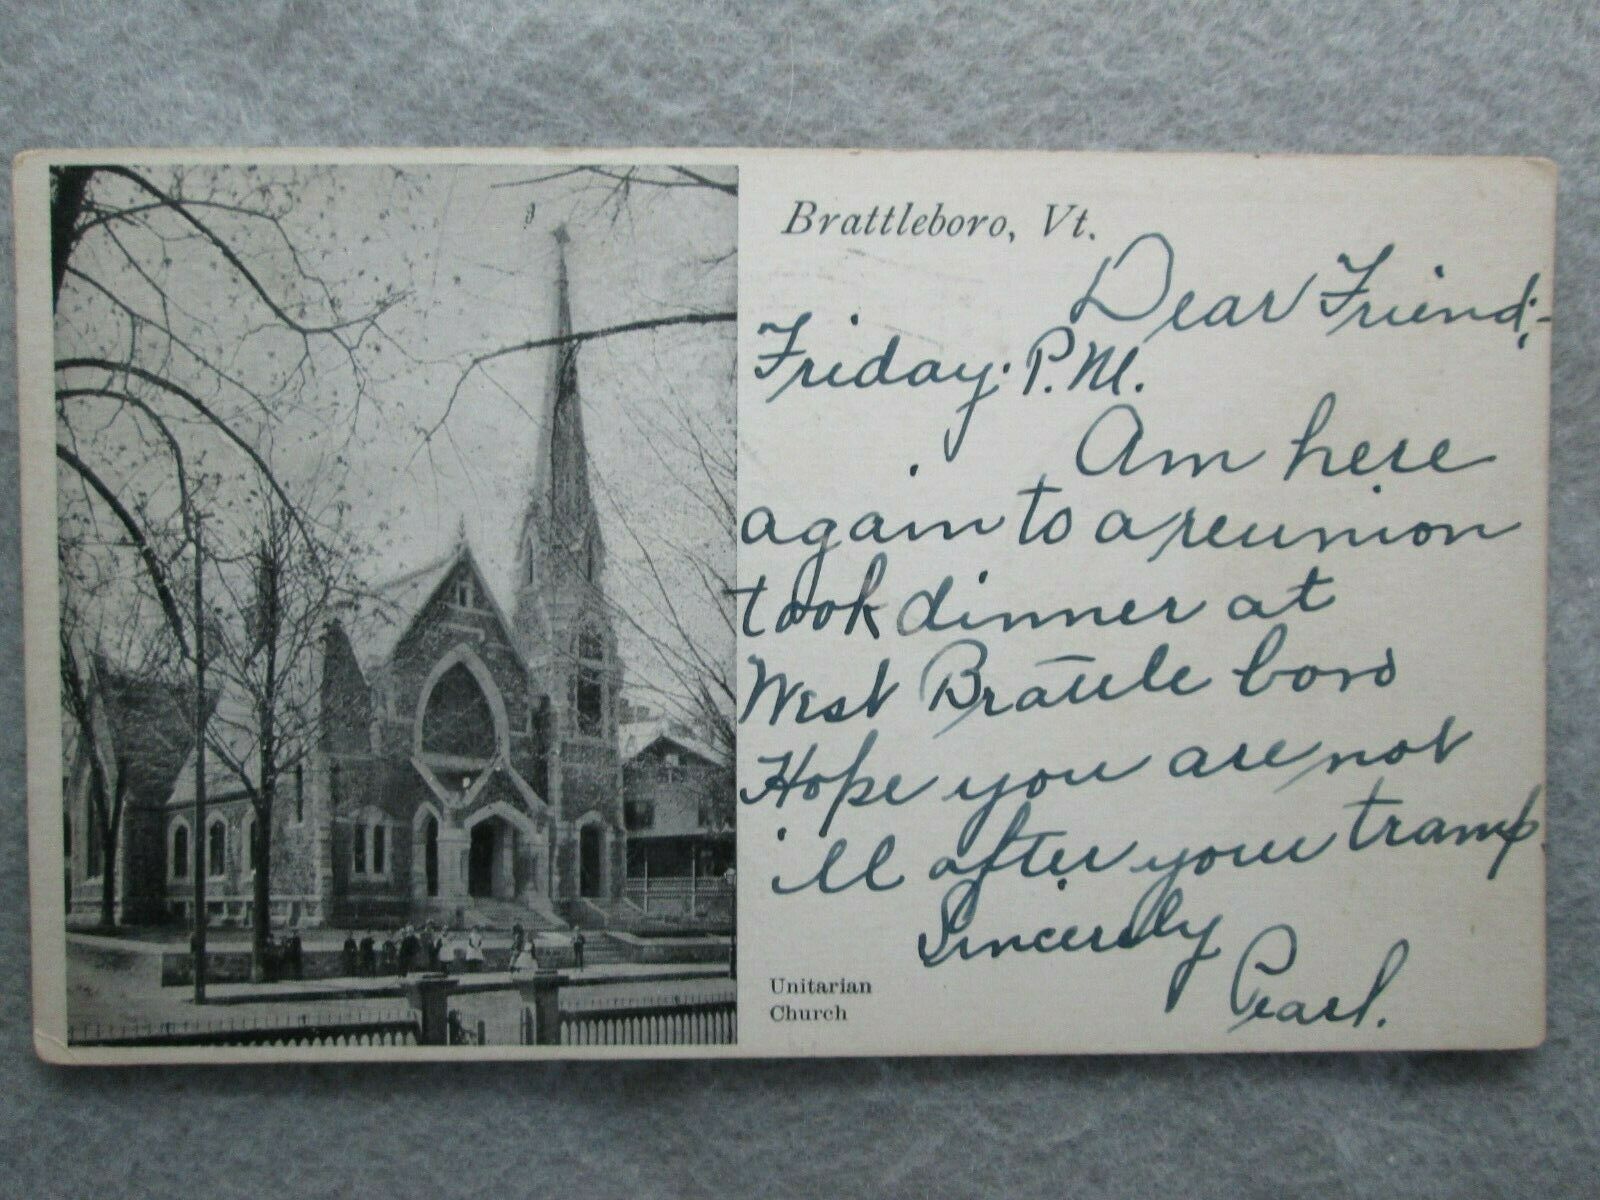 Brattleboro, Vt.
Dear Friend;-
Friday. P.M.
Am here
again to a reunion
took dinner at
West Brattle boro
Hope you are not
ill after your tramp.
Sincerely
Pearl.
Unitarian
Church